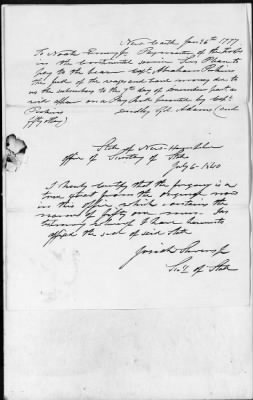 New Castle Jan 26th 1777
To Noah Emery Esq Paymaster of the
in the Continental service Sir Please to
pay to the bearer Capt. Abraham Perkins
the full of the wages and due to
us the subscribers to the 7th day of December last as
said officer on a Pay Roll by Capt.
Perkins
fifty others)
State of New-Hampshire
Office of Secretary of State
July 6- 1840
I hereby certify that the foregoing is a
true copy from the original now
in this office which contains the
names of fifty one men. In
testimony whereof I have hereunto
affixed the seal of said State
Josiah Stevens Jr
Secy of State